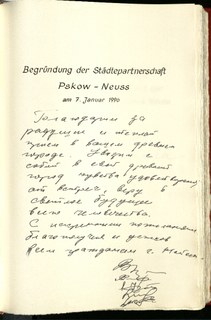 Begründung der Städtepartnerschaft
Pskow – Neuss
am 7. Januar 1990
Благодарим за
радушие и теплый
прием в вашем древнем
городе. Увозим с
собой в свой древний
город чувство удовлетворения
от встреч, веру в
светлое будущее
всего человечества.
С искренними пожеланиями
благополучия и успехов
всем гражданам г. Нойсса